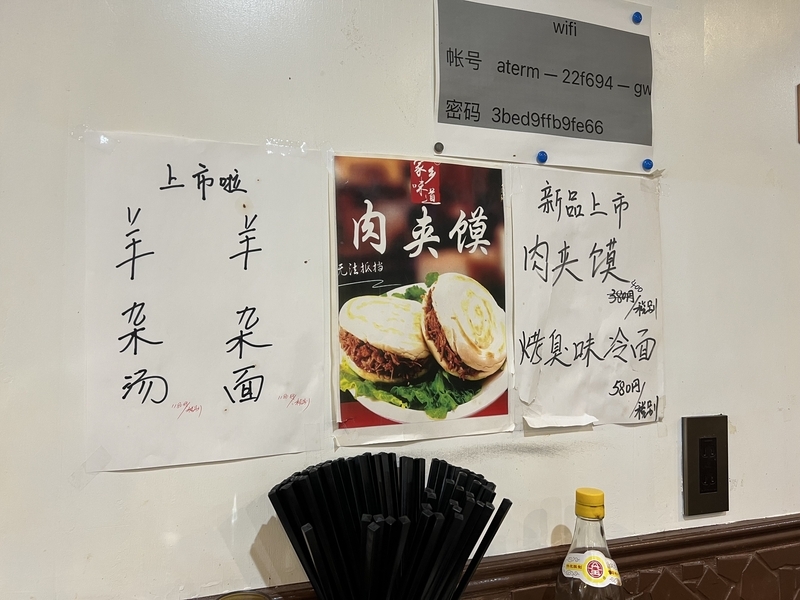 wifi
帐号 aterm — 22f694 — gw
密码 3bed9ffb9fe66
上市啦
羊杂汤
羊杂面
家乡味道
肉夹馍
无法抵挡
新品上市
肉夹馍
400
380円/税别
烤臭味冷面
580円/税别